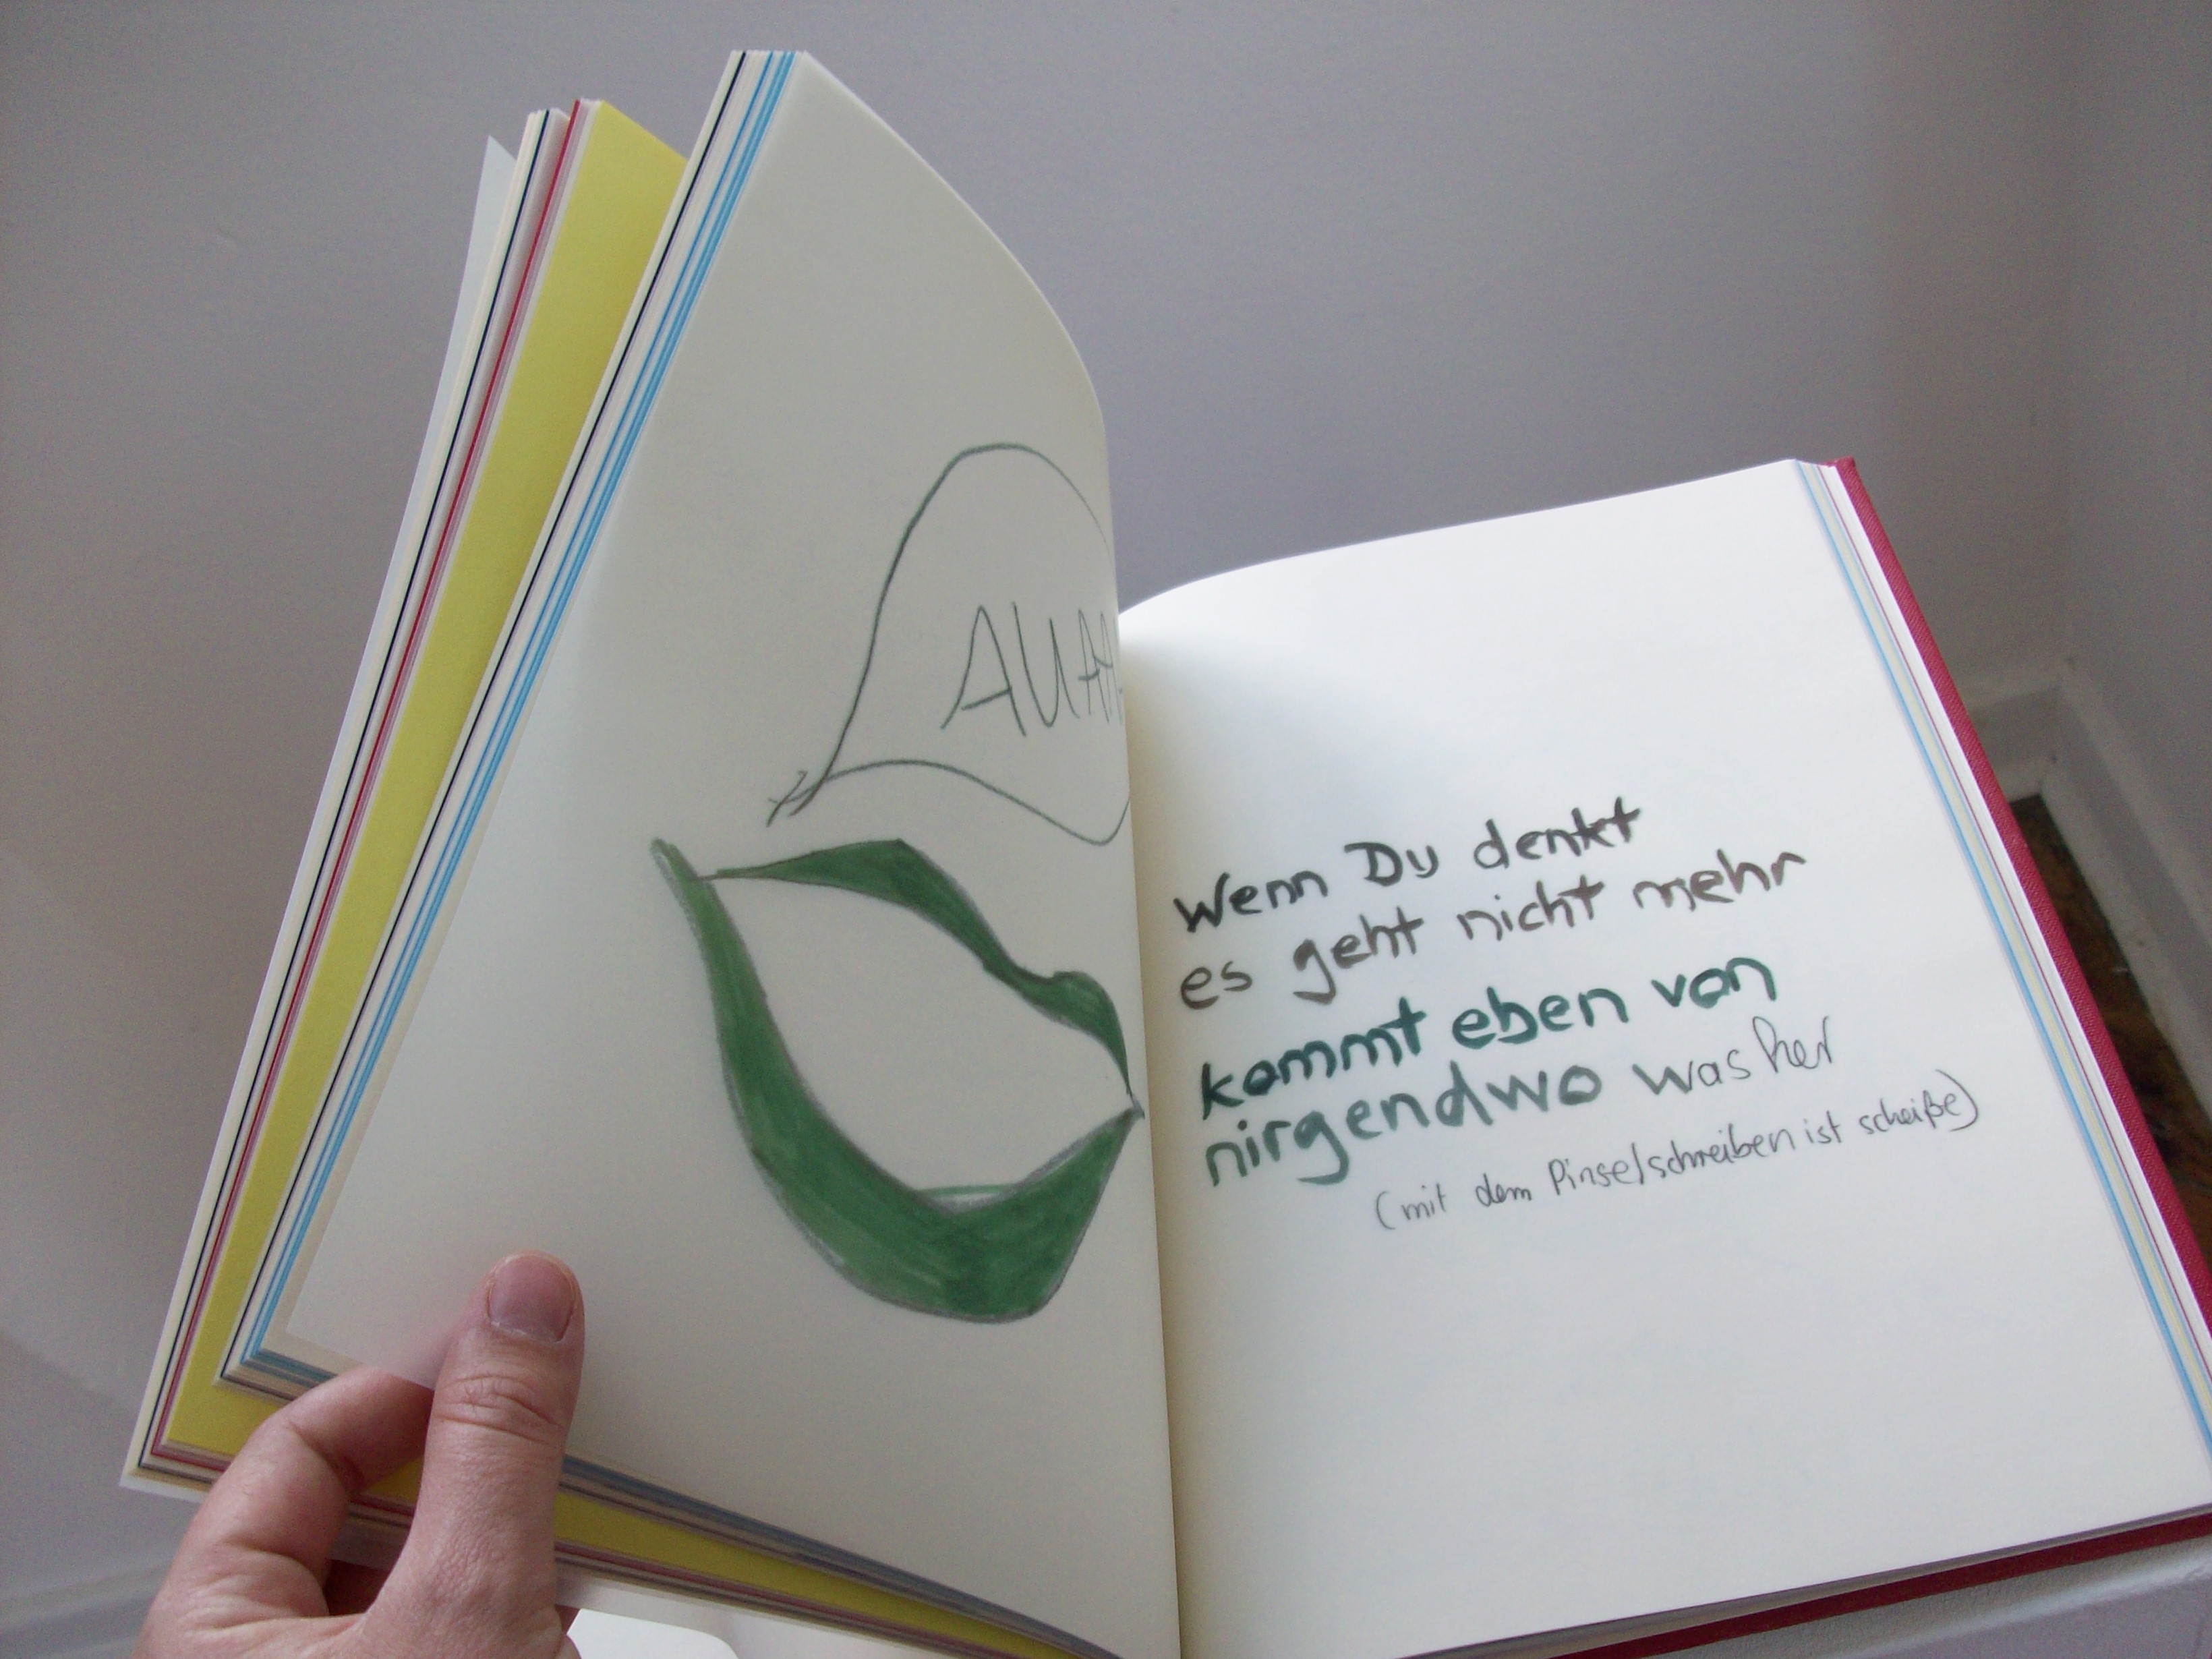 AUAA
Wenn Du denkt
es geht nicht mehr
kommt eben von
nirgendwo was her
(mit dem Pinselschreiben ist scheiße)